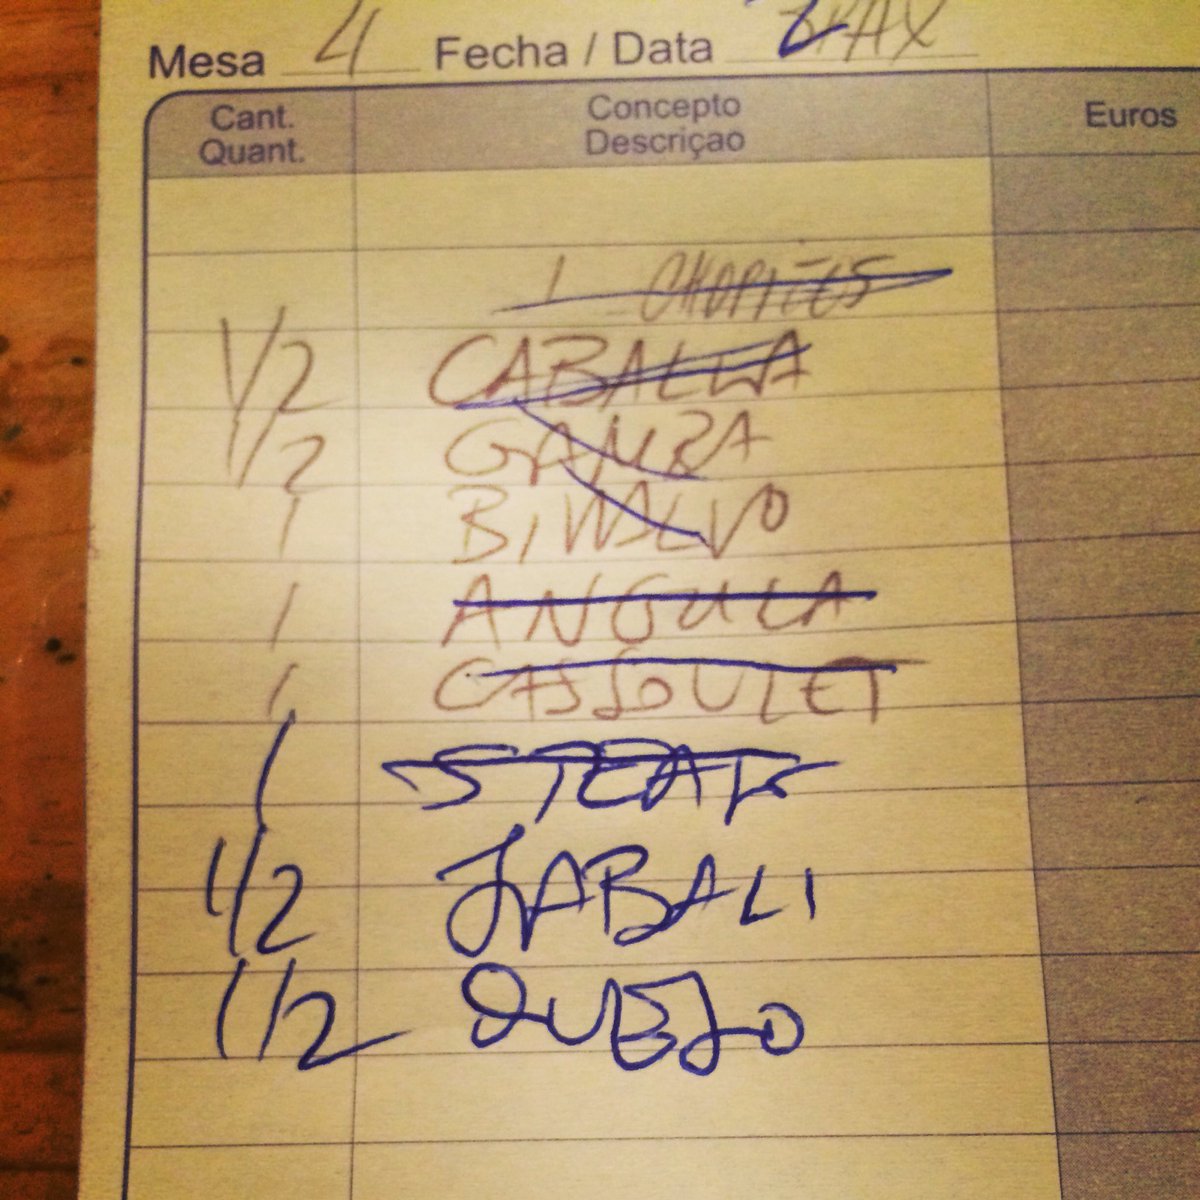 Mesa 4 Fecha / Data 2 PAX
Cant. Quant. Concepto Descriçao Euros
1 CHOPITOS
1/2 CABALLA
1/2 GAMBA
1 BIVALVO
1 ANGULA
1 CASSOULET
1 STEAK
1/2 JABALI
1/2 QUEJO